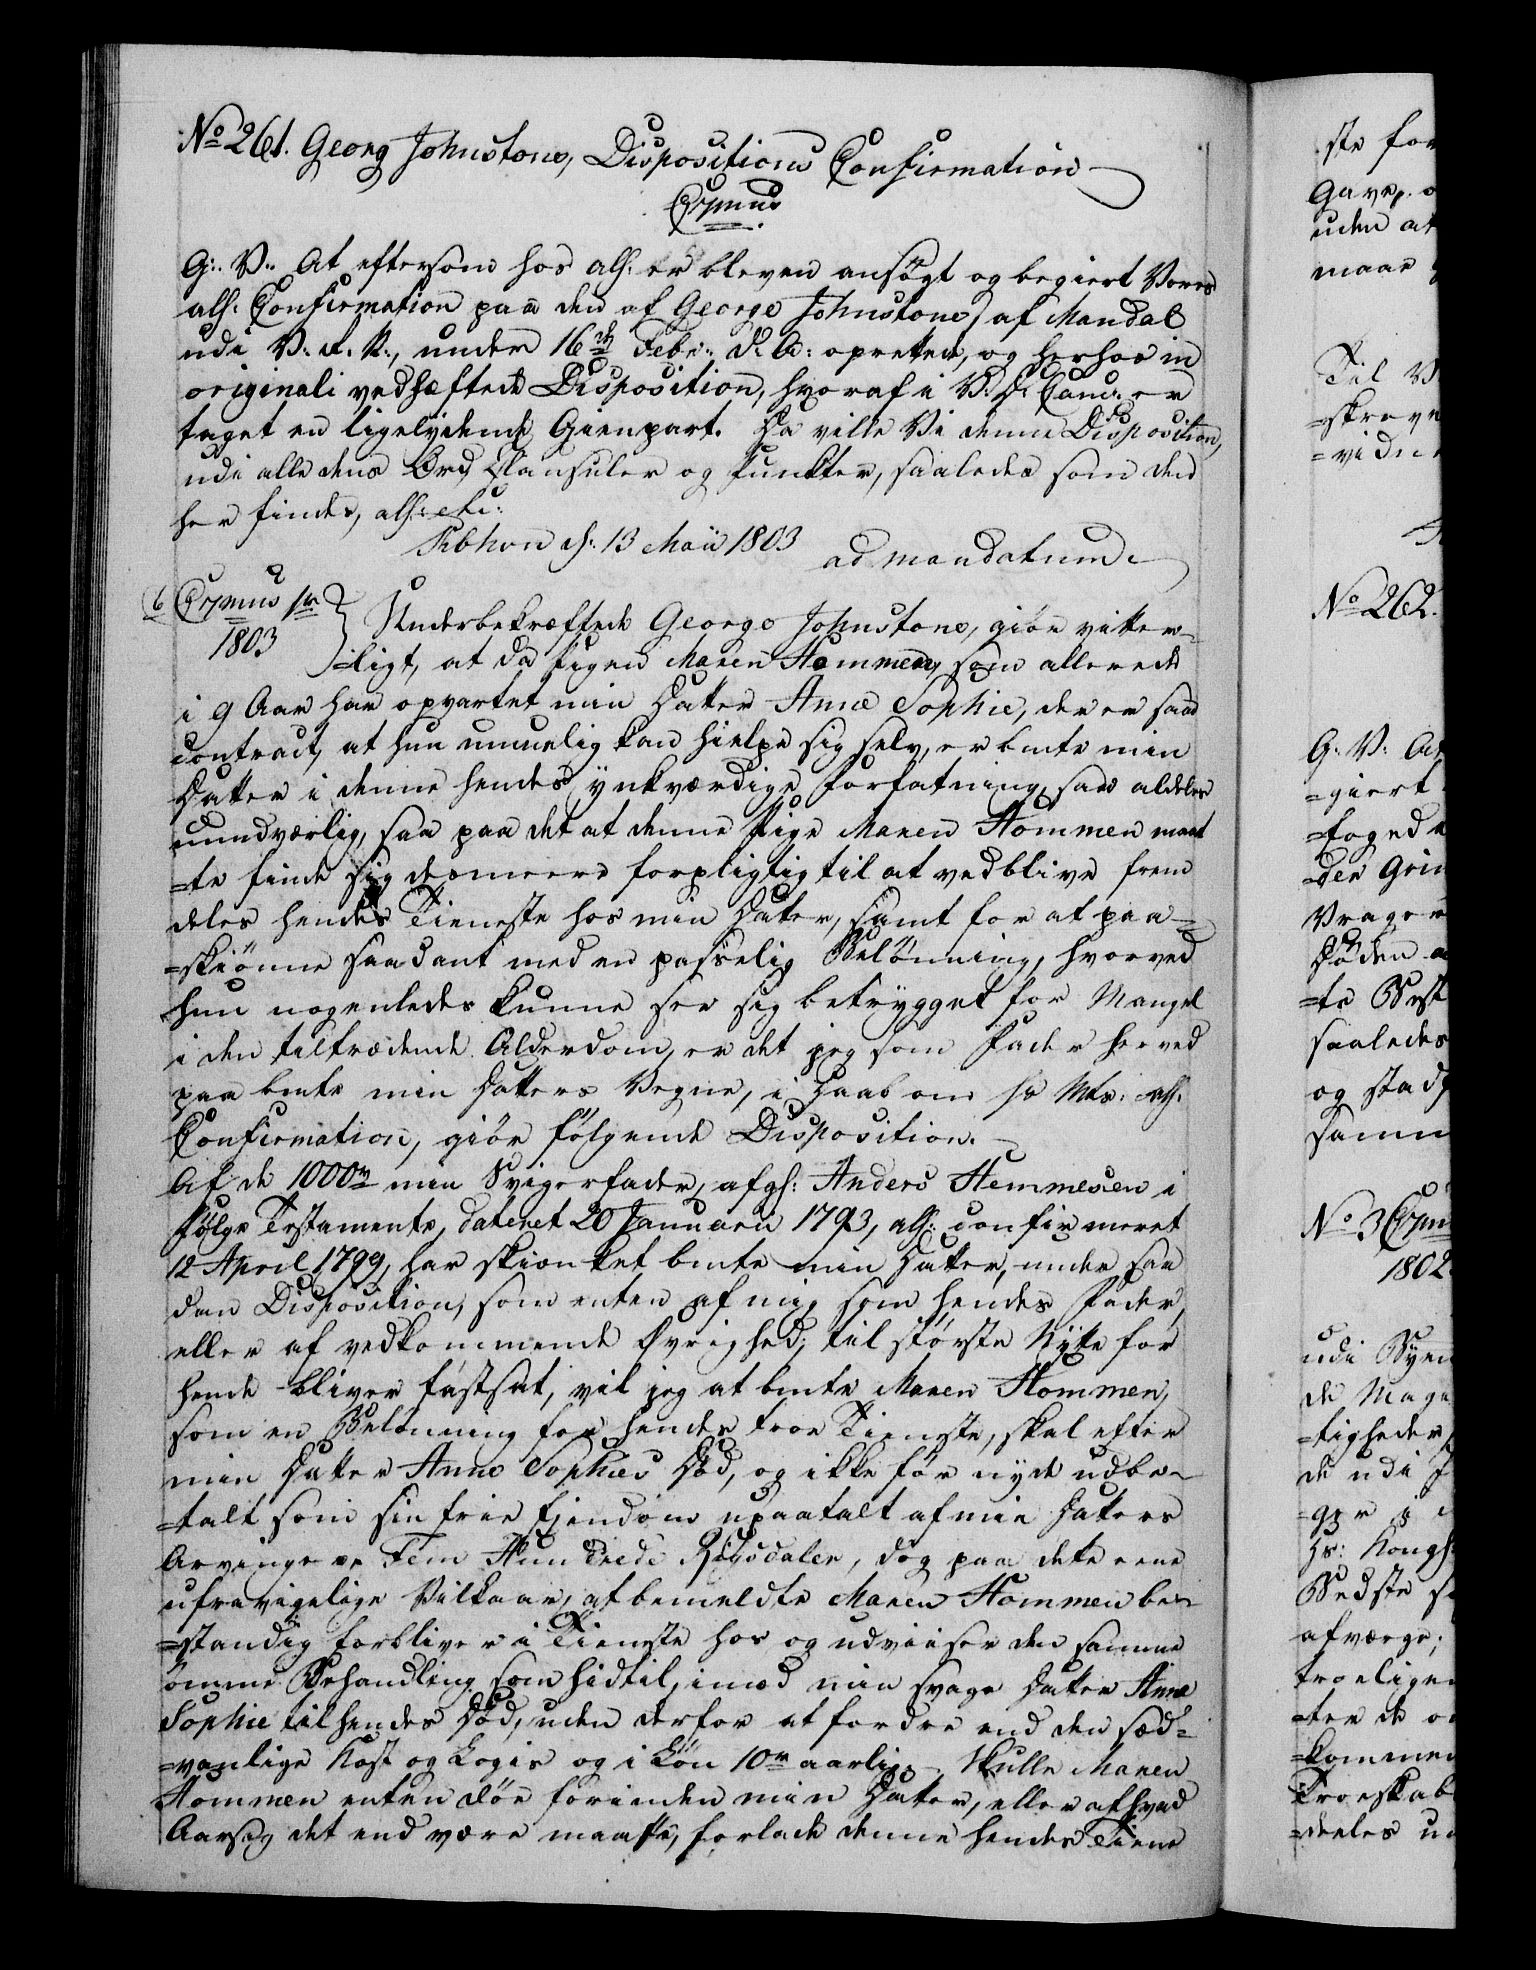 No 261. Georg Johnstons, Dispositions Confirmation
Crsmus
G:. V:. At eftersom hos alh: er bleven ansøgt og begiert Vores
alh: Confirmation paa den af George Johnstone, af Mandal
udi V: R. N:, under 16de Febr: d: A: oprettede, og herhos in
originali vedhæftede Disposition, hvoraf i V: D: Canc: er
taget en ligelydende Gienpart. Da ville Vi denne Disposition,
udi alle dens Ord, Clausuler og Punkter, saaledes som den
her findes, alh: etc:
Kbhvn d: 13 Maii 1803 ad mandatum.
6 Crsmus
1803
Underbekræftede George Johnstone, giör vitter-
=ligt, at da Pigen Maren Hommen, som allerede
i 9 Aar har opvartet min Datter Anne Sophie, der er saa
contract, at hun umuelig kan hielpe sig selv, er bmte min
Datter i denne hendes ynkværdige Forfatning, saa aldeles
uundværlig, saa paa det at denne Pige Maren Hommen maat
=te finde sig desmeere forpligtig til at vedblive frem
deles hendes Tieneste hos min Datter, samt for at paa-
=skiönne saadant med en passelig Belönning, hvorved
hun nogenledes kunne see sig betrygget for Mangel
i den tiltrædende Alderdom, er det jeg som Fader herved
paa bmte min Datters Vegne, i Haab om Hs Mts: alh:
Confirmation, giör fölgende Disposition.
Af de 1000 rd min Svigerfader, afgl: Anders Hemmesen i
fölge Testamente, dateret 20 Januarii 1793, alh: confirmeret
12 April 1799, har skienket bmte min Datter, under saa
dan Disposition, som enten af mig som hendes Fader,
eller af vedkommende Øvrighed, til største Nytte for
hende bliver fastsat, vil jeg at bmte Maren Hommen,
som en Belönning for hendes troe Tieneste, skal efter
min Datter Anne Sophies Död, og ikke för nyde udbe-
=talt som sin frie Ejendom upaatalt af min Datters
Arvinger Fem Hundrede Rigsdaler, dog paa dette eene
ufravigelige Vilkaar, at bemeldte Maren Hommen be-
=standig forbliver i Tieneste hos og udviiser den samme
ömme Behandling som hidtil, imod min svage Datter Anne
Sophie til hendes Död, uden derfor at fordre end den sæd-
=vanlige Kost og Logie og i Lön 10 rd aarlig. Skulle Maren
Hommen enten döe forinden min Datter, eller af hvad
Aarsag det end være maatte, forlade denne hendes Tiene
ste for
uden at
maae
Til V
=skreve
=vidne
No 262.
G: V: At
=giert
=foged
Vrager
Döden
saaledes
og stad
samm
No 3
1802
udi
de Maga
=tigheder
de udi
Hs: Kongl:
Bedste
afværge;
troeligen
=ter de
=kommen
Troeskab
=deeles